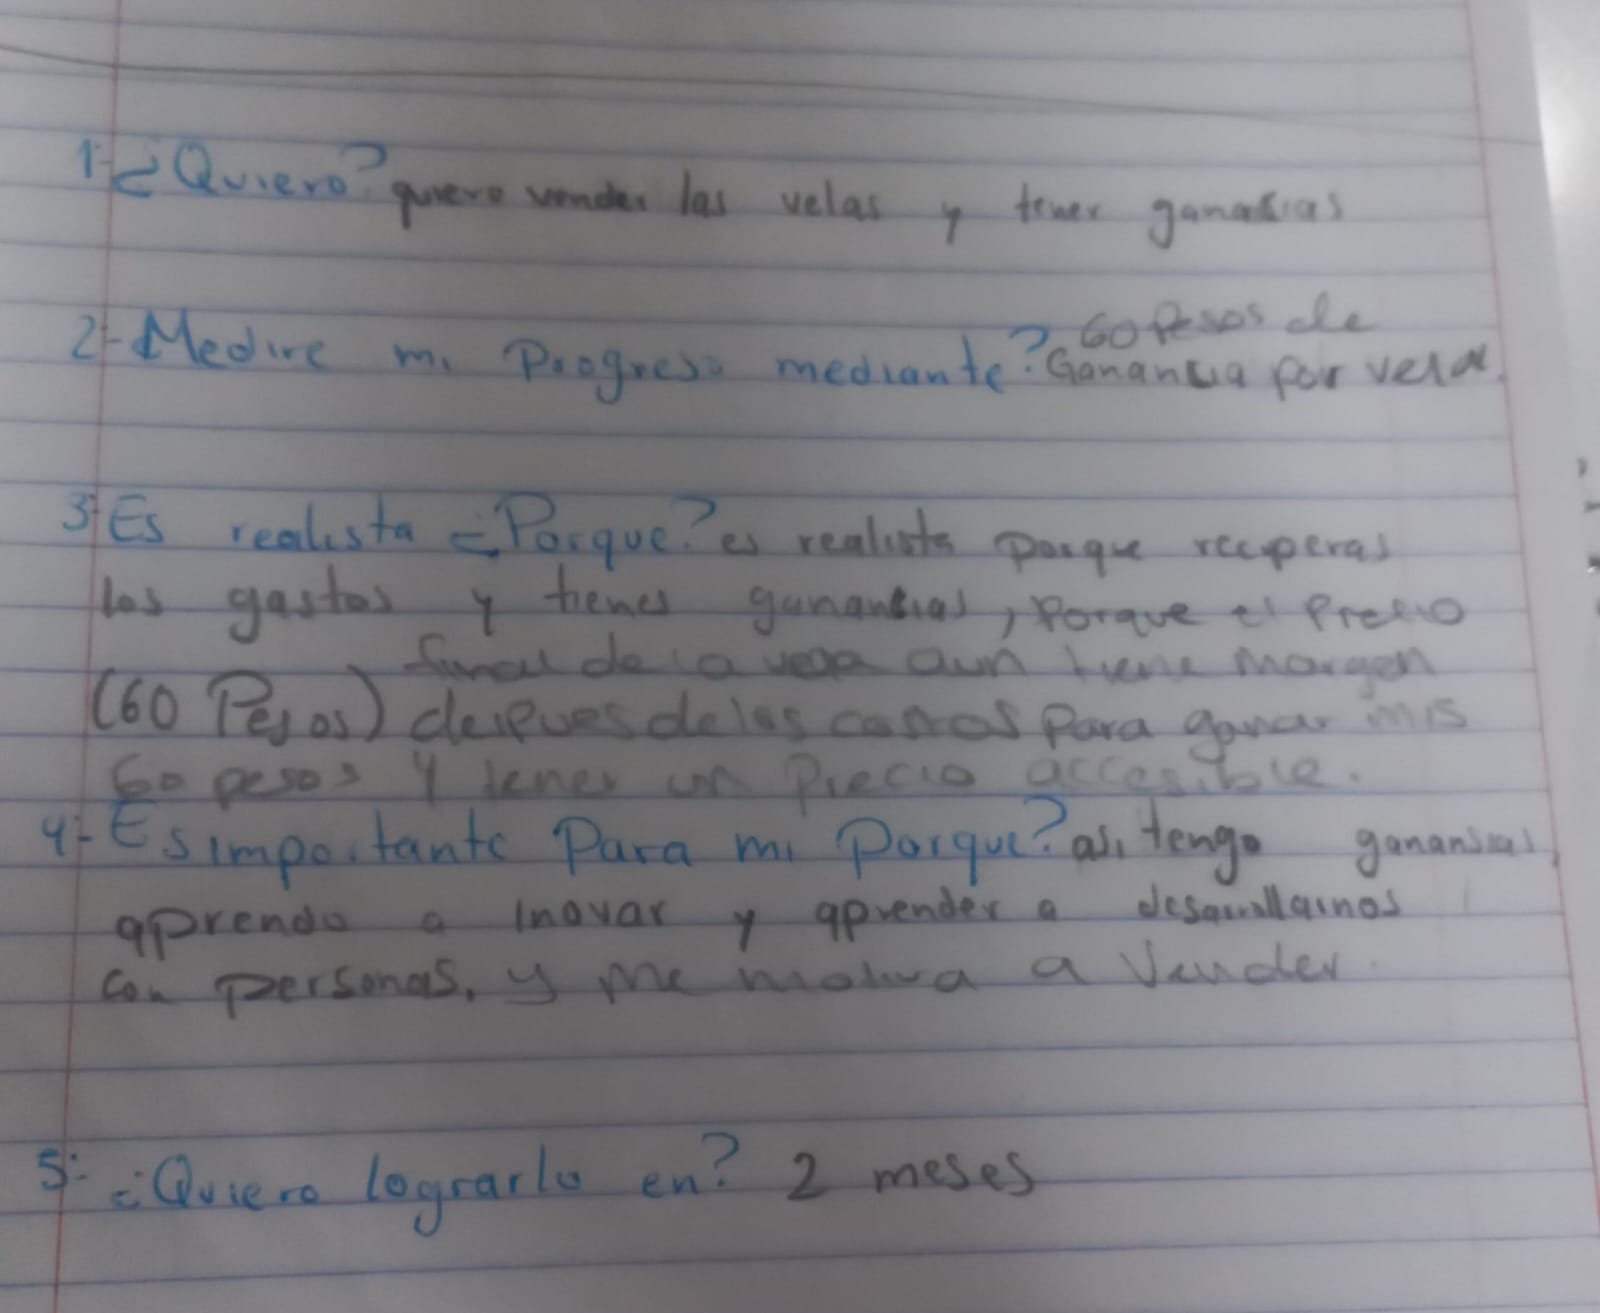 1- ¿Quiero? quiero vender las velas y tener ganacias
60 Pesos de
2- Medire mi Progreso mediante? Ganancia por vela.
3- Es realista ¿Porque? es realista porque recuperas
los gastos y tienes ganancias, Porque el Precio
final de la vela aun tiene margen
(60 Pesos) despues de los costos Para ganar mis
60 pesos y tener un Precio accesible.
4- Es importante Para mi Porque? asi tengo ganancias,
aprendo a inovar y aprender a desarrollarnos
con personas, y me motiva a Vender.
5- ¿Quiero lograrlo en? 2 meses